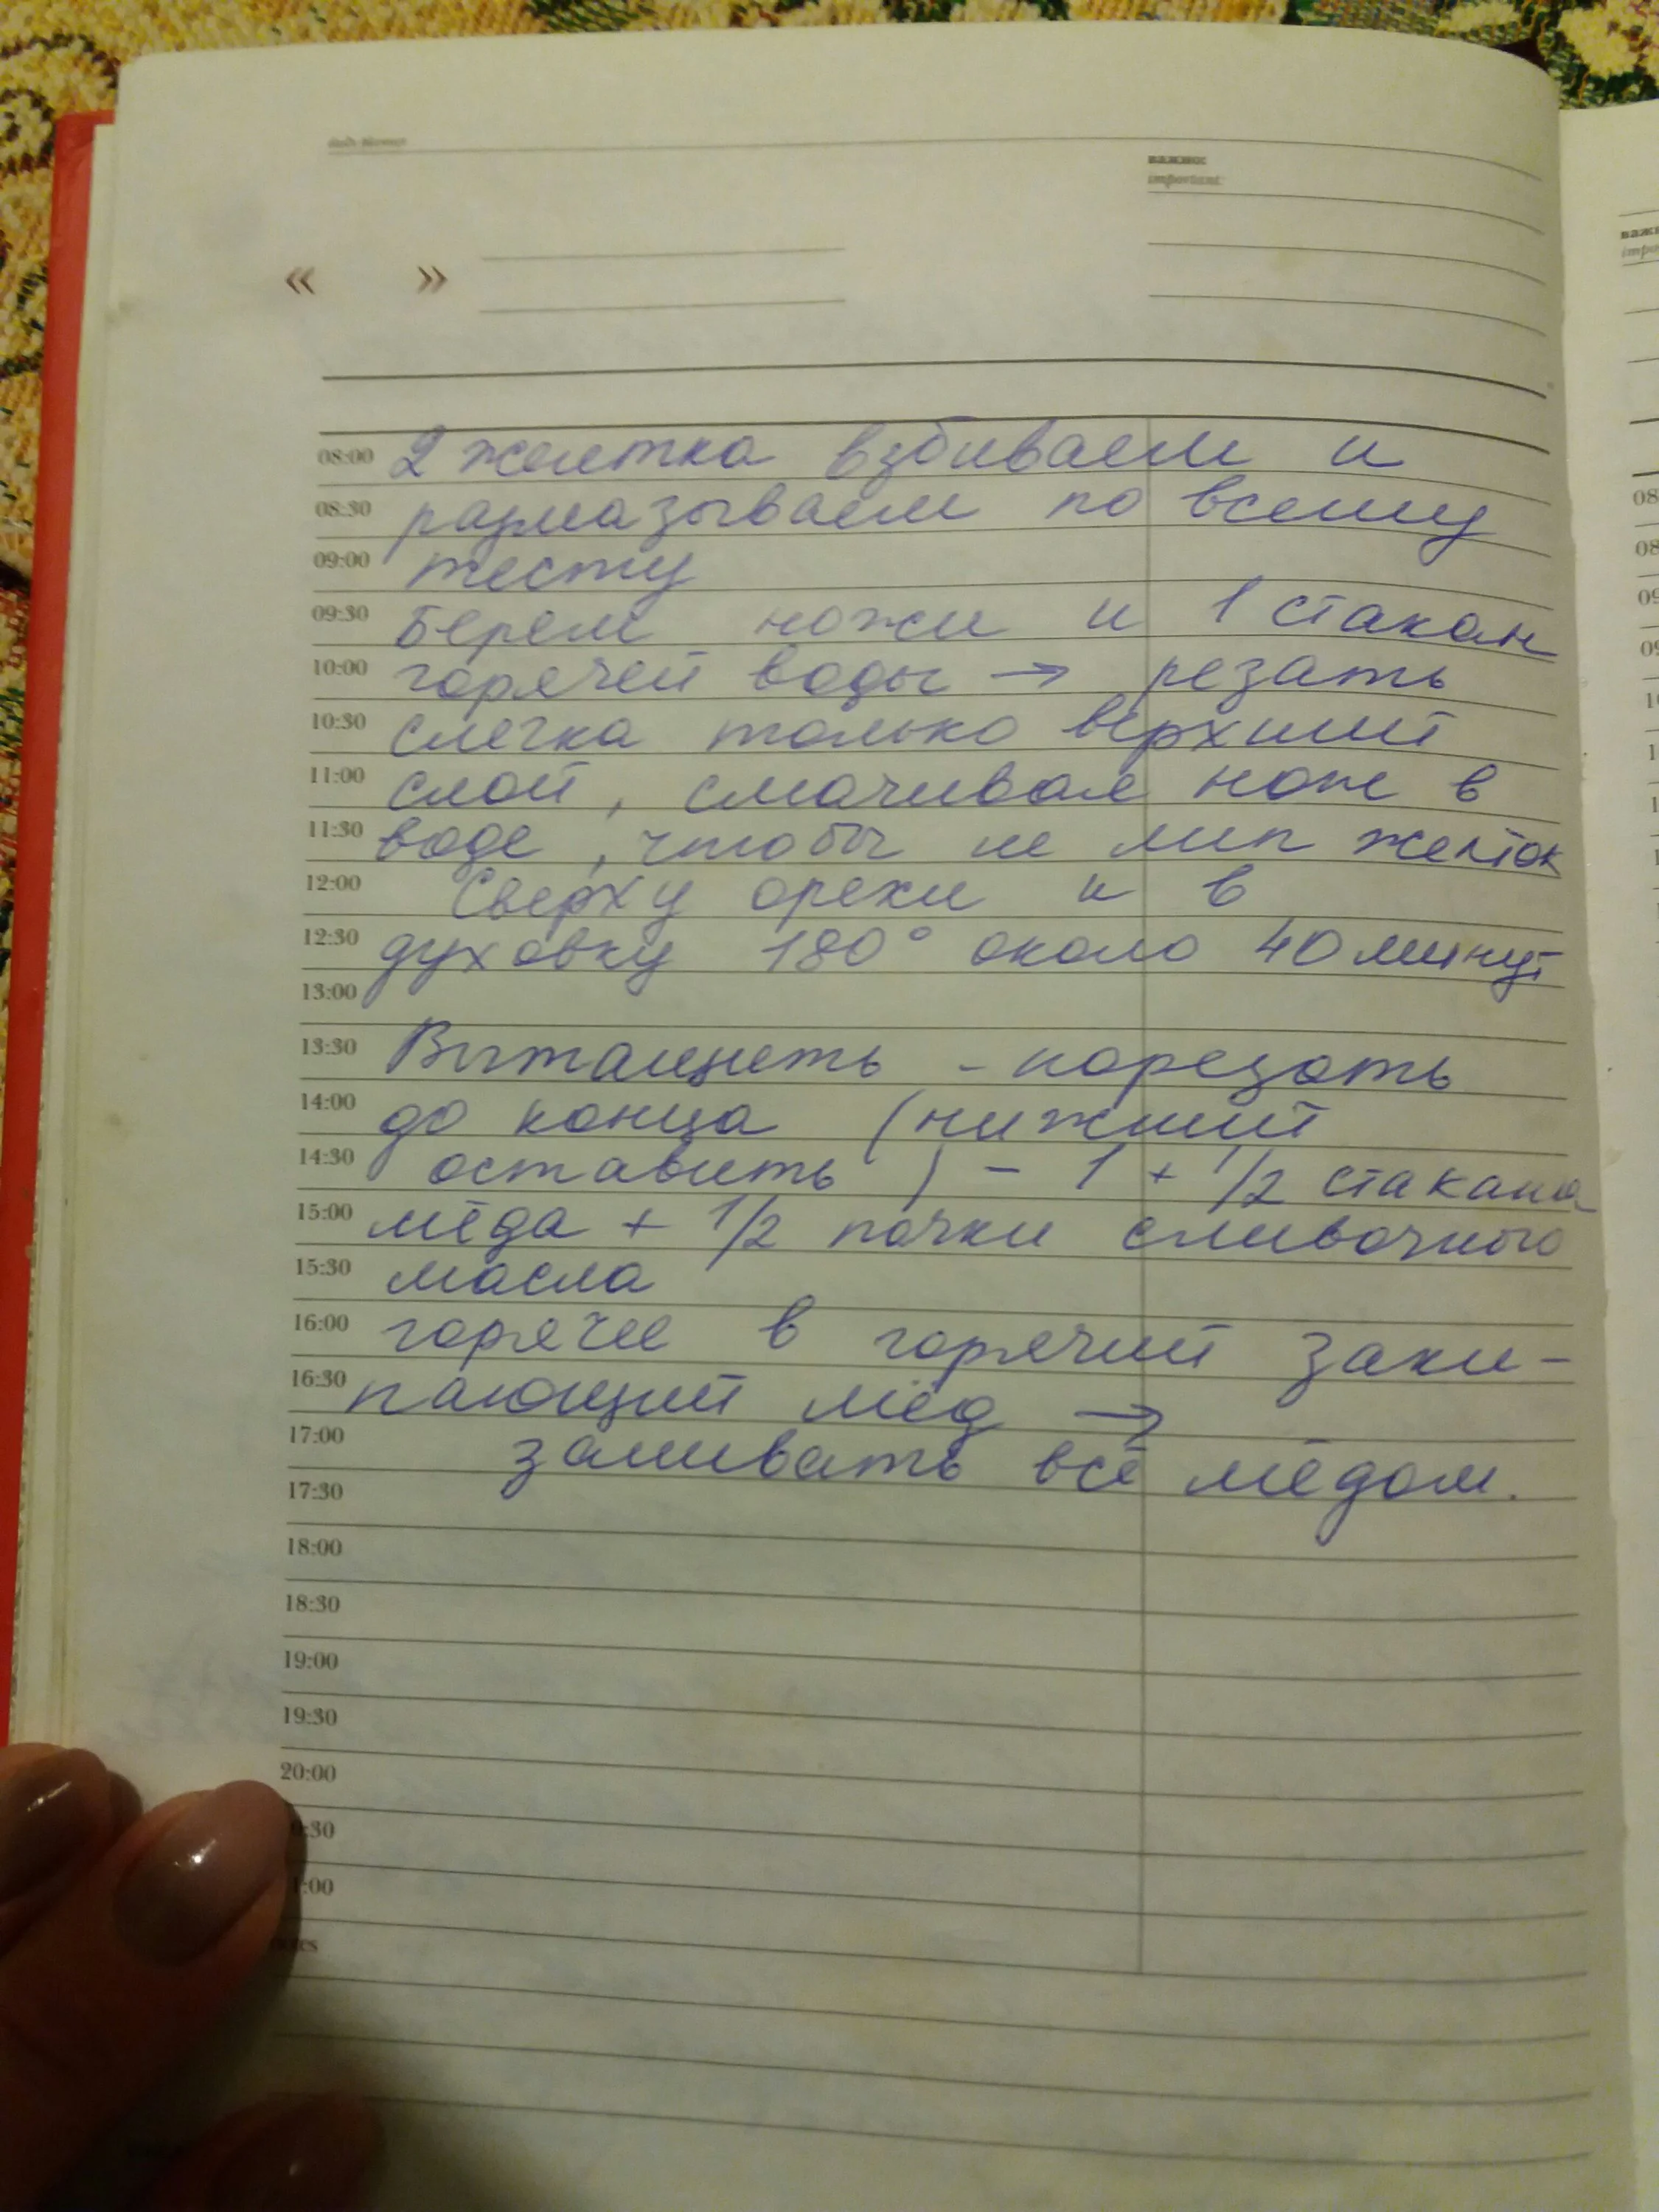 важно:
important:
« »
08:00 2 желтка взбиваем и
08:30 размазываем по всему
09:00 тесту
09:30 Берем ножи и 1 стакан
10:00 горячей воды → резать
10:30 слегка только верхний
11:00 слой, смачивая нож в
11:30 воде, чтобы не лип желток
12:00 Сверху орехи и в
12:30 духовку 180° около 40 минут
13:00
13:30 Вытащить - порезать
14:00 до конца (нижний
14:30 оставить) - 1 + 1/2 стакана
15:00 мёда + 1/2 пачки сливочного
15:30 масла
16:00 горячее в горячий заки-
16:30 пающий мёд →
17:00 заливать всё мёдом.
17:30
18:00
18:30
19:00
19:30
20:00
:30
:00
важн
impo
08
08
09
09
10